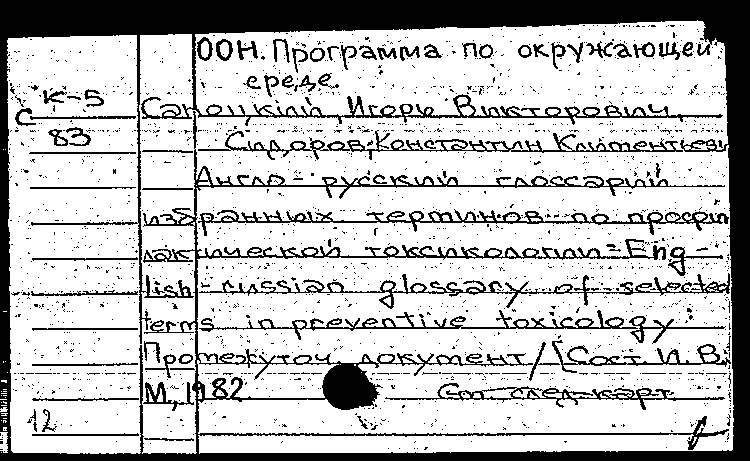 ООН. Программа по окружающей
среде.
К-5
С
83
Саноцкий, Игорь Викторович,
Сидоров, Константин Климентьеви
Англо-русский глоссарий
избранных терминов по профи
лактической токсикологии=Eng-
lish-russian glossary of selected
terms in preventive toxicology:
Промежуточ. документ/[Сост И. В.
М., 1982
См. след. карт.
12